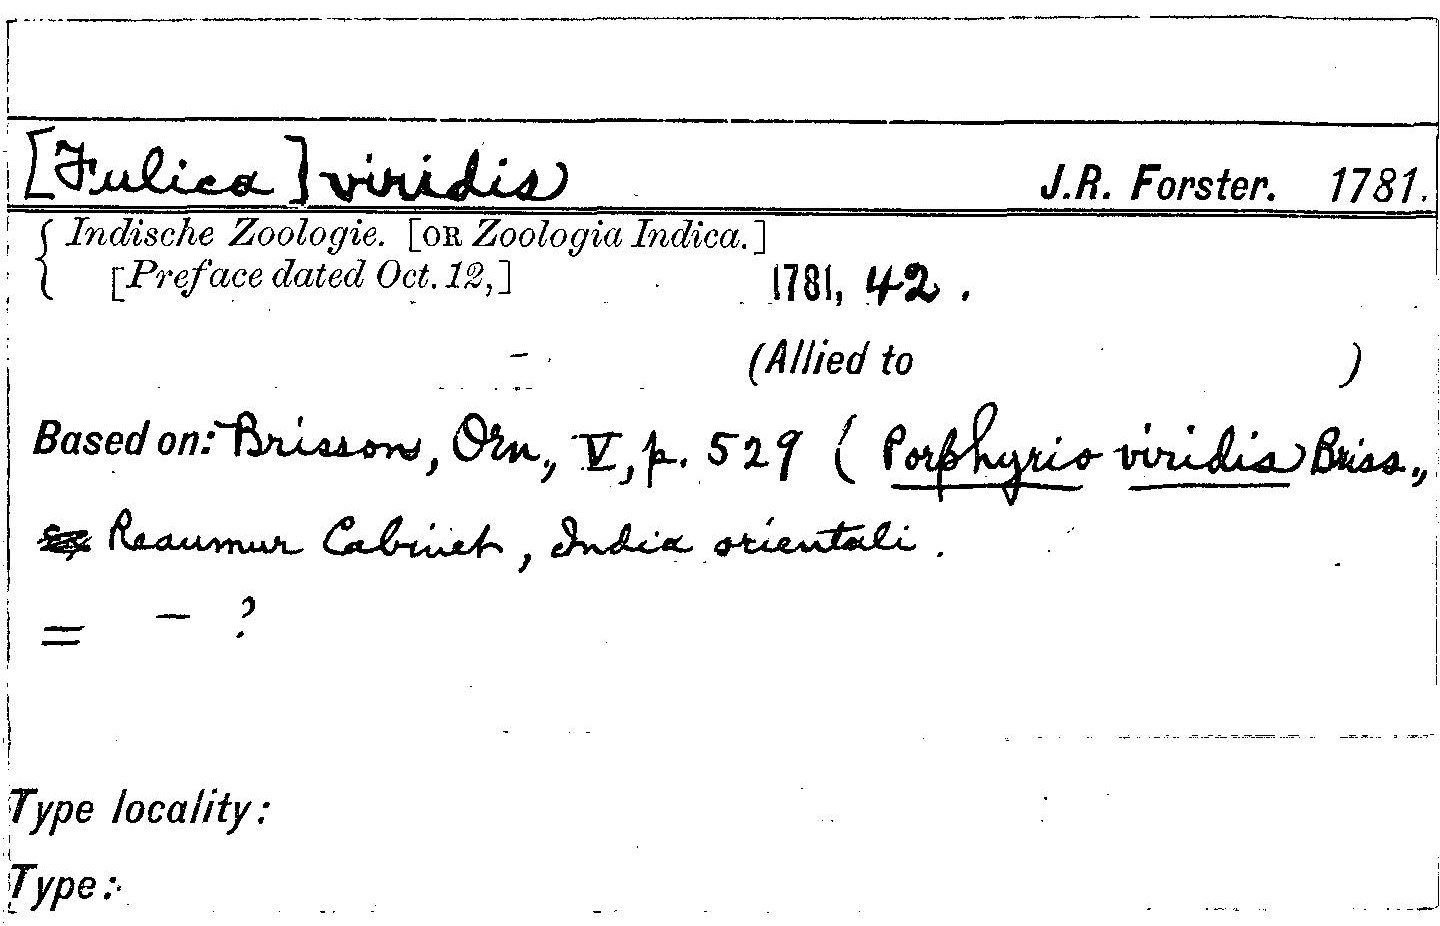 [Fulica] viridis J.R. Forster. 1781.
Indische Zoologie. [OR Zoologia Indica.]
[Preface dated Oct. 12,] 1781, 42.
(Allied to )
Based on: Brisson, Orn., V, p. 529 (Porphyrio viridis Briss.,
Reaumur Cabinet, India orientali.
= – ?
Type locality:
Type: